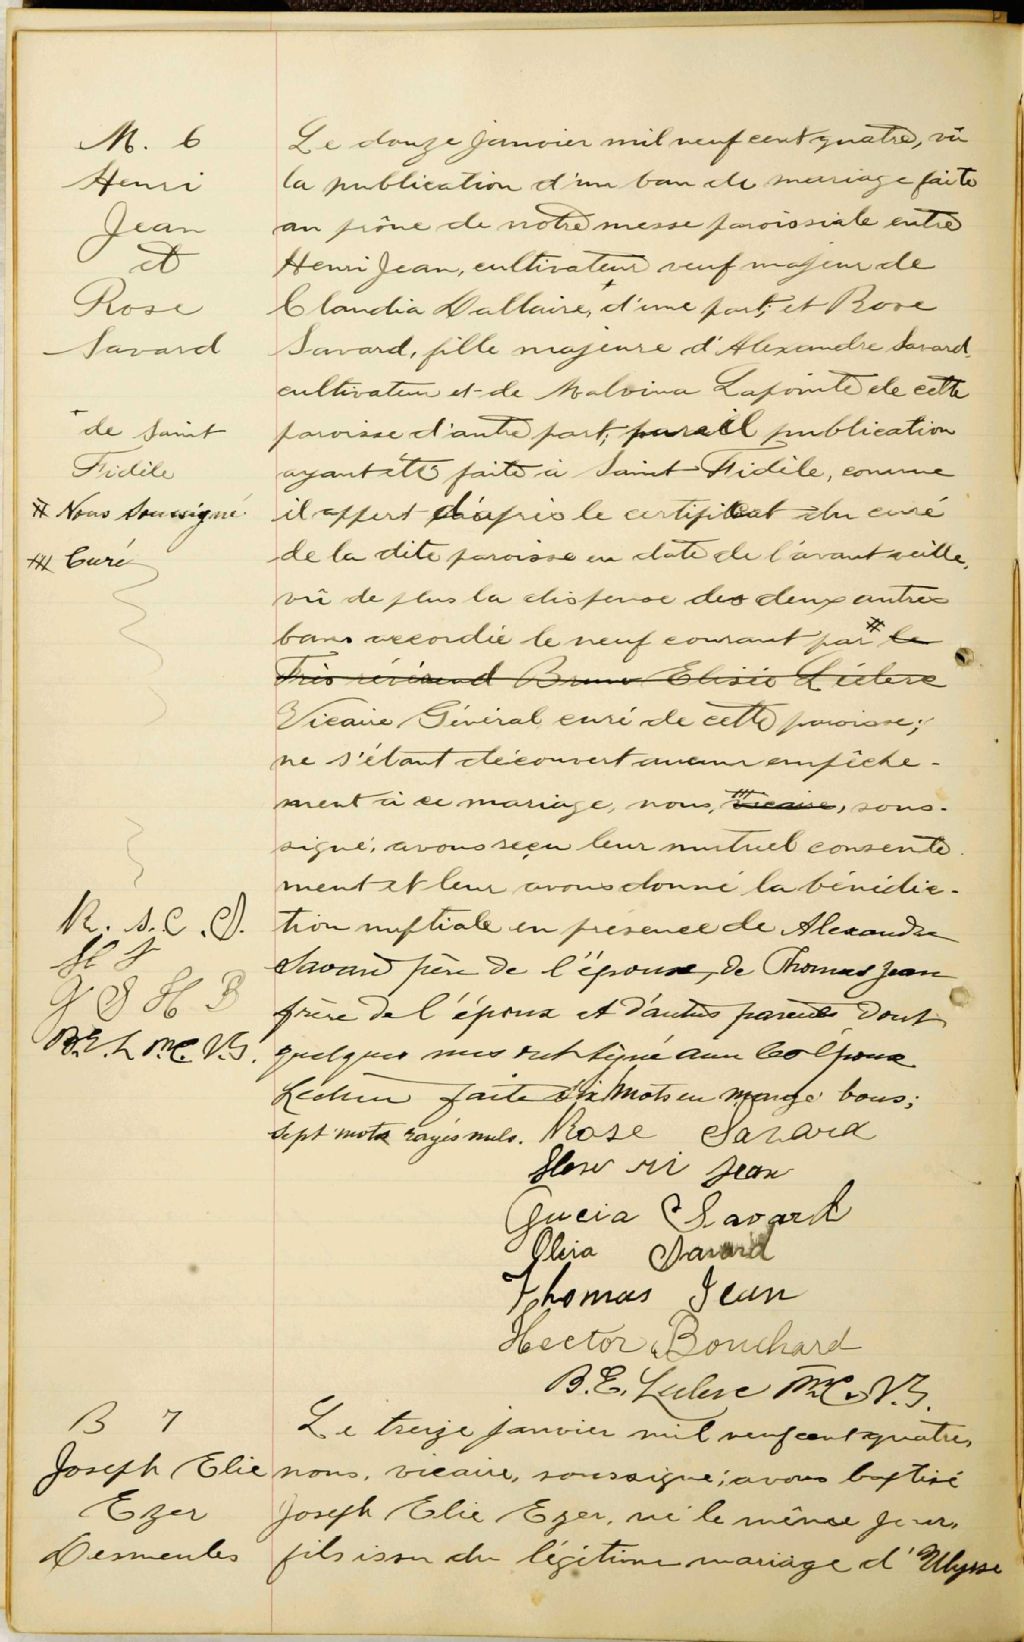 M. 6
Henri
Jean
et
Rose
Savard
+ de Saint
Fidèle
# Nous soussigné
### Curé
R. S. C. S.
H J
G S H B
B.E. L. M.C. V.G.
Le douze janvier mil neuf cent quatre, vû
la publication d'un ban de mariage faite
au prône de notre messe paroissiale entre
Henri Jean, cultivateur veuf majeur de
Claudia Dallaire, + d'une part; et Rose
Savard, fille majeure d'Alexandre Savard
cultivateur et de Malvina Lapointe de cette
paroisse d'autre part; pareil publication
ayant été faite à Saint Fidèle, comme
il appert d'après le certificat du curé
de la dite paroisse en date de l'avant veille,
vû de plus la dispense des deux autres
bans accordée le neuf courant par # le
Très révérend Bruno Elisée Leclerc
Vicaire Général curé de cette paroisse;
ne s'étant découvert aucun empêche-
ment à ce mariage, nous, ### vicaire, sous-
signé, avons reçu leur mutuel consente
ment et leur avons donné la bénédic-
tion nuptiale en présence de Alexandre
Savard père de l'épouse, de Thomas Jean
frère de l'époux et d'autres parents dont
quelques uns ont signé avec les époux
Lecture faite six mots en marge bons;
sept mots rayés nuls. Rose Savard
Henri Jean
Savard
Savard
Thomas Jean
Hector Bouchard
B.E. Leclerc M.C. V.G.
B 7
Joseph Elie
Ezer
Desmeules
Le treize janvier mil neuf cent quatre,
nous, vicaire, soussigné; avons baptisé
Joseph Elie Ezer, né le même jour,
fils issu du légitime mariage d'Ulysse